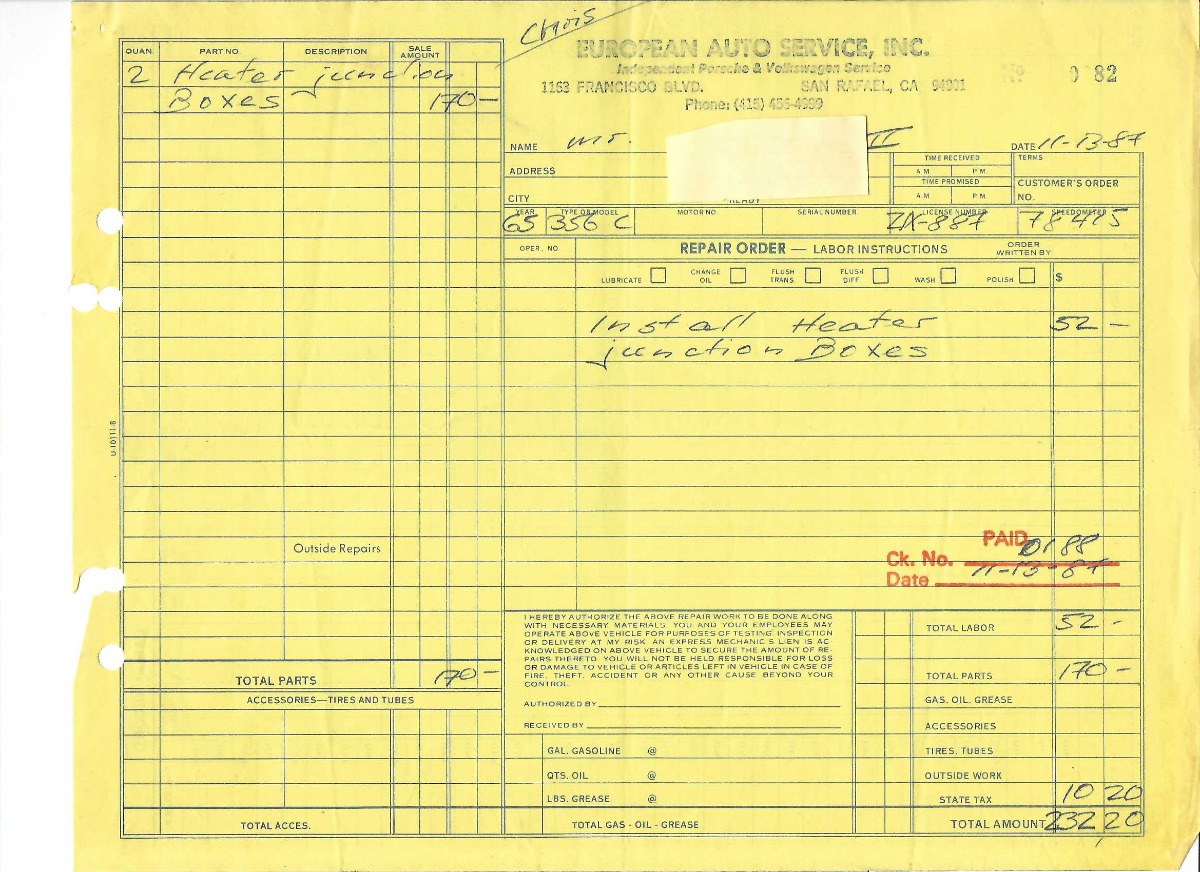 Chris
EUROPEAN AUTO SERVICE, INC.
Independent Porsche & Volkswagen Service
1163 FRANCISCO BLVD. SAN RAFAEL, CA 94901
Phone: (415) 456-4999
No 0 82
QUAN. PART NO. DESCRIPTION SALE AMOUNT
2 Heater junction
Boxes 170-
NAME Mr. II DATE 11-13-87
ADDRESS
CITY
TIME RECEIVED
A.M. P.M.
TIME PROMISED
A.M. P.M.
TERMS
CUSTOMER'S ORDER
NO.
READY
YEAR TYPE OR MODEL MOTOR NO. SERIAL NUMBER LICENSE NUMBER SPEEDOMETER
65 356 C 78415
OPER. NO. REPAIR ORDER — LABOR INSTRUCTIONS ORDER WRITTEN BY
LUBRICATE CHANGE OIL FLUSH TRANS FLUSH DIFF. WASH POLISH $
Install Heater 52-
junction Boxes
U-10111-B
Outside Repairs
PAID
Ck. No. 0188
Date 11-13-87
I HEREBY AUTHORIZE THE ABOVE REPAIR WORK TO BE DONE ALONG
WITH NECESSARY MATERIALS. YOU AND YOUR EMPLOYEES MAY
OPERATE ABOVE VEHICLE FOR PURPOSES OF TESTING, INSPECTION
OR DELIVERY AT MY RISK. AN EXPRESS MECHANIC'S LIEN IS AC-
KNOWLEDGED ON ABOVE VEHICLE TO SECURE THE AMOUNT OF RE-
PAIRS THERETO. YOU WILL NOT BE HELD RESPONSIBLE FOR LOSS
OR DAMAGE TO VEHICLE OR ARTICLES LEFT IN VEHICLE IN CASE OF
FIRE, THEFT, ACCIDENT OR ANY OTHER CAUSE BEYOND YOUR
CONTROL.
AUTHORIZED BY
RECEIVED BY
TOTAL PARTS 170-
ACCESSORIES—TIRES AND TUBES
TOTAL ACCES.
GAL. GASOLINE @
QTS. OIL @
LBS. GREASE @
TOTAL GAS - OIL - GREASE
TOTAL LABOR 52-
TOTAL PARTS 170-
GAS. OIL. GREASE
ACCESSORIES
TIRES. TUBES
OUTSIDE WORK
STATE TAX 10 20
TOTAL AMOUNT 232 20